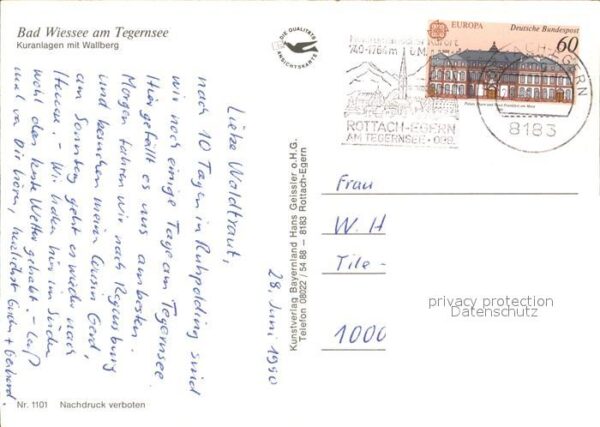 Bad Wiessee am Tegernsee
Kuranlagen mit Wallberg
DIE QUALITÄTS
ANSICHTSKARTE
EUROPA
Deutsche Bundespost
60
740-1764 m
ROTTACH-EGERN
AM TEGERNSEE
ROTTACH-EGERN
8183
28. Juni 1990
Liebe Waldtraut,
nach 10 Tagen in Ruhpolding sind
wir noch einige Tage am Tegernsee.
Hier gefällt es uns am besten.
Morgen fahren wir nach Regensburg
und besuchen meinen Cousin Gerd,
am Sonntag geht es wieder nach
Hause. - Wir haben hier im Süden
wohl das beste Wetter gehabt. - Laß
mal von Dir hören, herzlichst + Gerhard.
Kunstverlag Bayernland Hans Geissler o.H.G.
Telefon 08022 / 54 88 – 8183 Rottach-Egern
Frau
W. H
Tile-
1000
privacy protection
Datenschutz
Nr. 1101 Nachdruck verboten